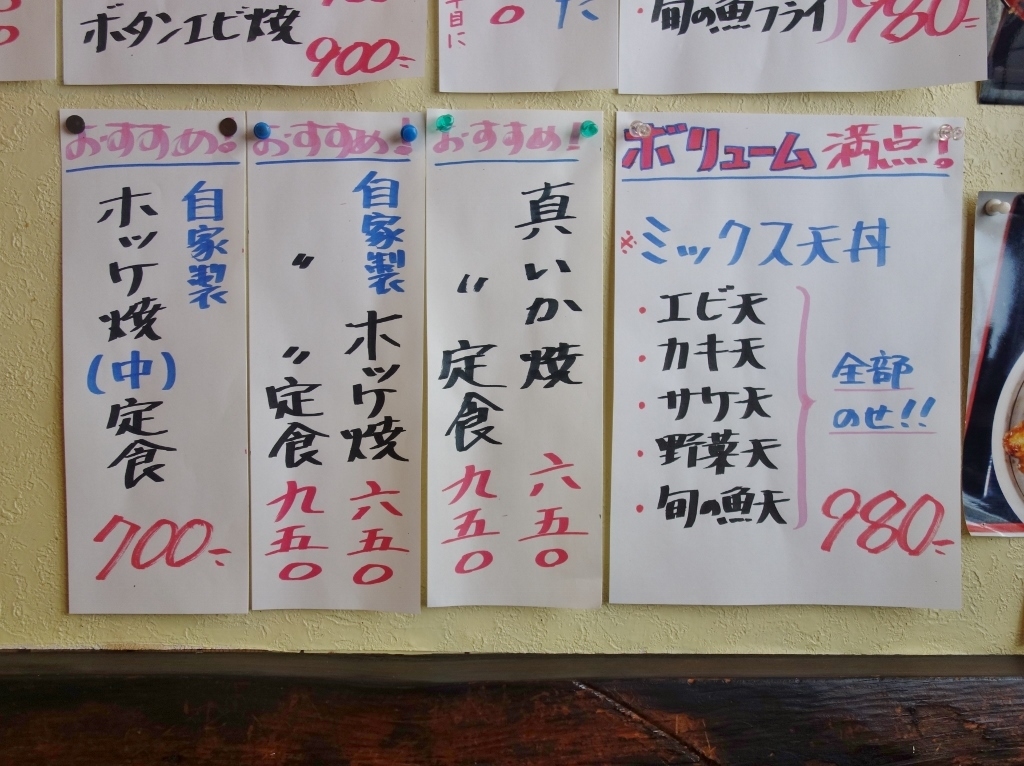 ボタンエビ焼
900-
0
た
・旬の魚フライ
980-
おすすめ。
自家製
ホッケ焼(中)定食
700-
おすすめ!
自家製 ホッケ焼 六五〇
〃 〃 定食 九五〇
おすすめ!
真いか焼 六五〇
〃 定食 九五〇
ボリューム満点!
※ミックス天丼
・エビ天
・カキ天
・サケ天
・野菜天
・旬の魚天
全部
のせ!!
980-